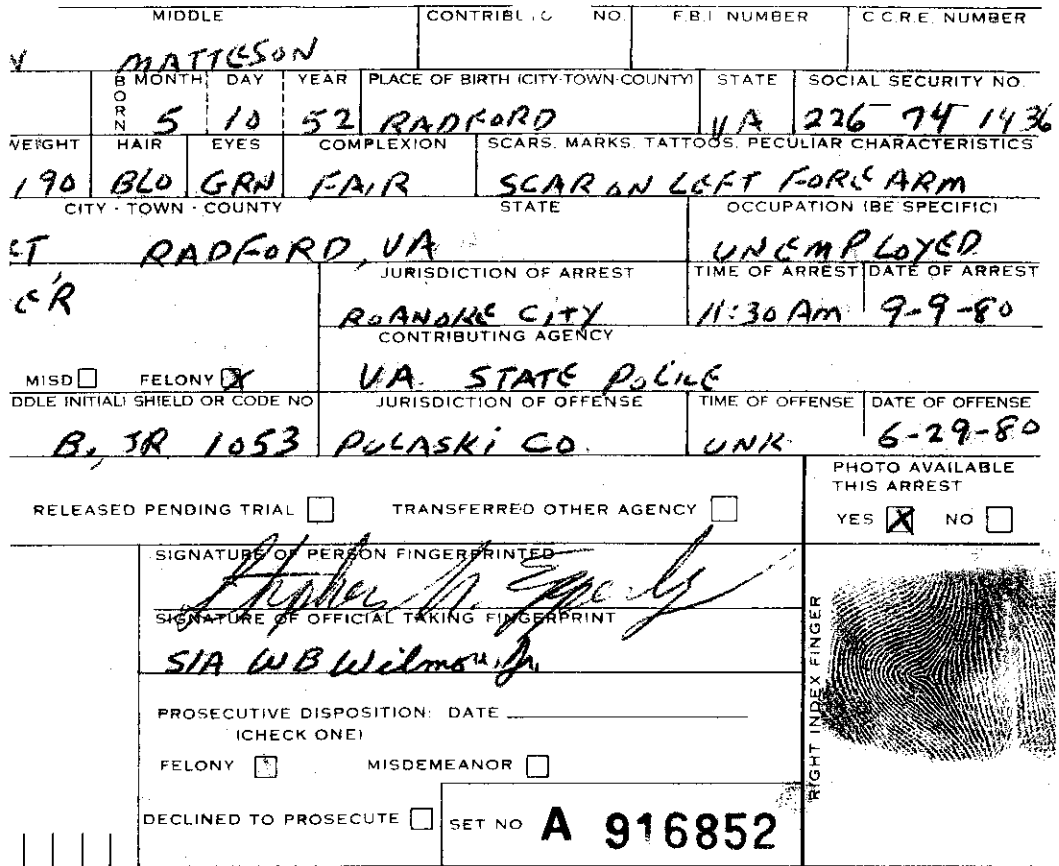 MIDDLE NO. F.B.I. NUMBER C.C.R.E. NUMBER
N MATTESON
BORN MONTH DAY YEAR PLACE OF BIRTH (CITY-TOWN-COUNTY) STATE SOCIAL SECURITY NO.
5 10 52 RADFORD VA 226 74 1436
WEIGHT HAIR EYES COMPLEXION SCARS, MARKS, TATTOOS, PECULIAR CHARACTERISTICS
190 BLO GRN FAIR SCAR ON LEFT FOREARM
CITY - TOWN - COUNTY STATE OCCUPATION (BE SPECIFIC)
RADFORD, VA UNEMPLOYED
JURISDICTION OF ARREST TIME OF ARREST DATE OF ARREST
ER ROANOKE CITY 11:30 Am 9-9-80
CONTRIBUTING AGENCY
MISD FELONY X VA. STATE POLICE
DDLE INITIAL) SHIELD OR CODE NO JURISDICTION OF OFFENSE TIME OF OFFENSE DATE OF OFFENSE
B., JR 1053 PULASKI CO. UNK 6-29-80
PHOTO AVAILABLE
THIS ARREST
RELEASED PENDING TRIAL TRANSFERRED OTHER AGENCY YES X NO
SIGNATURE OF PERSON FINGERPRINTED
Stephen M. Epperly
SIGNATURE OF OFFICIAL TAKING FINGERPRINT
S/A WB Wilmore, Jr.
RIGHT INDEX FINGER
PROSECUTIVE DISPOSITION: DATE
(CHECK ONE)
FELONY MISDEMEANOR
DECLINED TO PROSECUTE SET NO A 916852